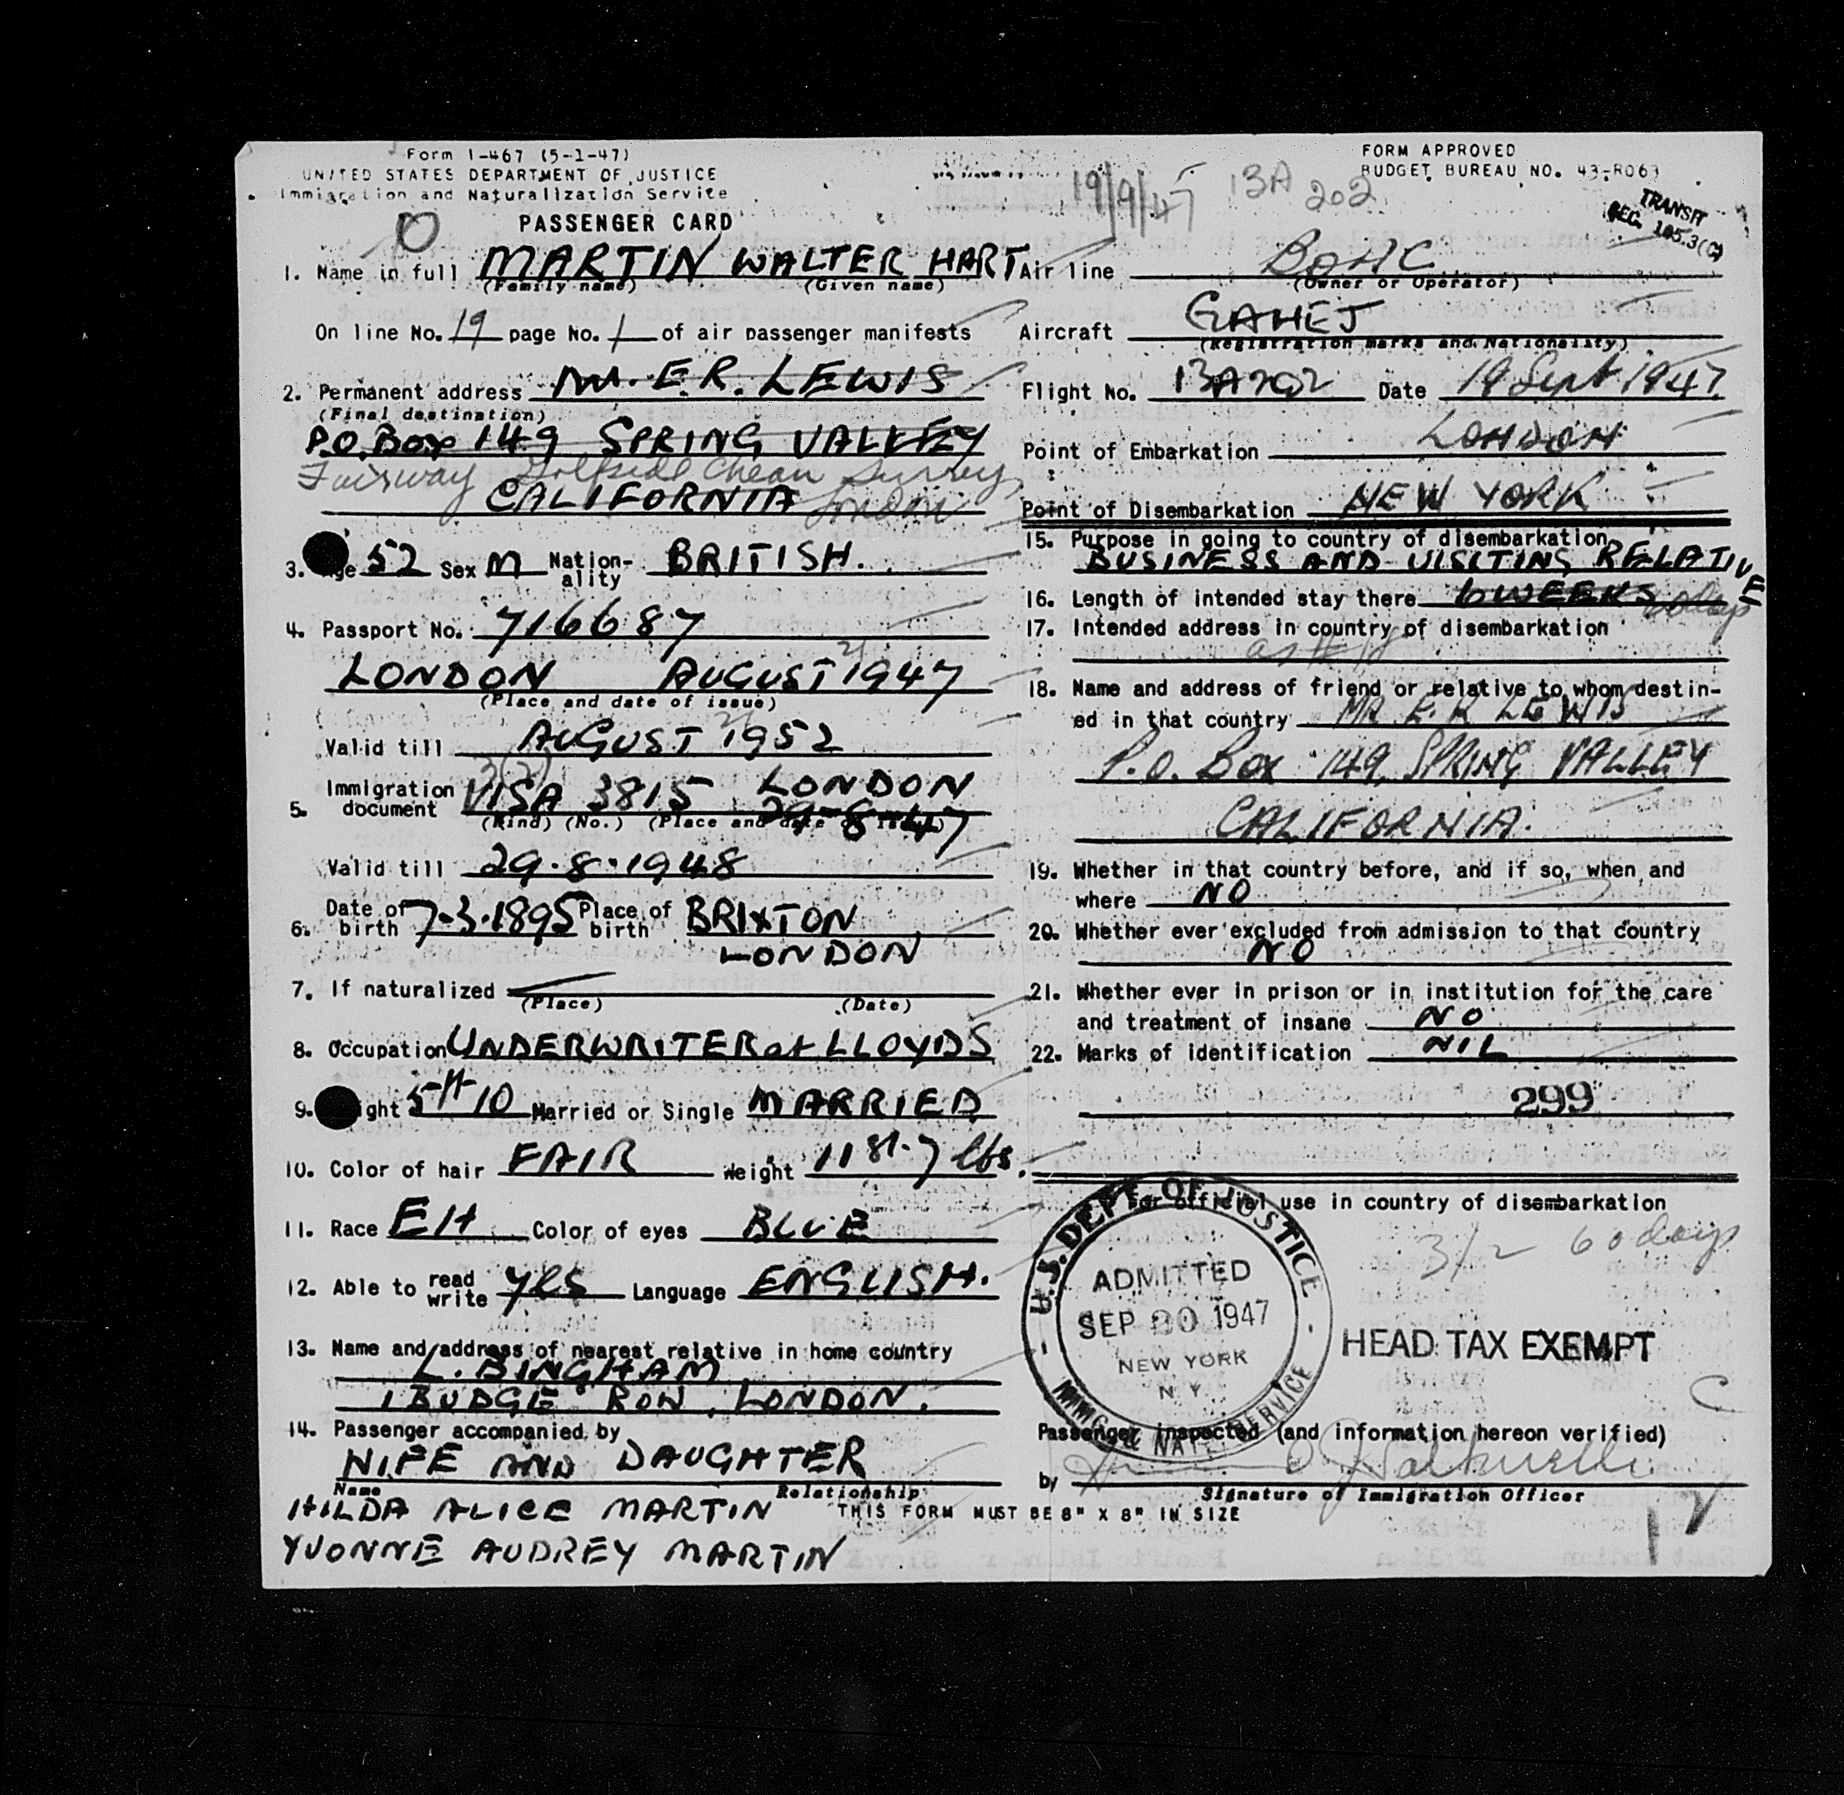 Form I-467 (5-1-47)
UNITED STATES DEPARTMENT OF JUSTICE
Immigration and Naturalization Service
PASSENGER CARD
O
1. Name in full MARTIN WALTER HART
(Family name) (Given name)
On line No. 19 page No. 1 of air passenger manifests
2. Permanent address M. E R. LEWIS
(Final destination)
P.O. Box 149 SPRING VALLEY
Fairway Golfside Cheam Surrey
CALIFORNIA London
3. Age 52 Sex M Nation-ality BRITISH.
4. Passport No. 716687
LONDON AUGUST 21 1947
(Place and date of issue)
Valid till AUGUST 21 1952
3(2)
5. Immigration document VISA 3815 LONDON 29-8-47
(Kind) (No.) (Place and date of issue)
Valid till 29.8.1948
6. Date of birth 7-3-1895 Place of birth BRIXTON
LONDON
7. If naturalized
(Place) (Date)
8. Occupation UNDERWRITER at LLOYDS
9. Height 5 ft 10 Married or Single MARRIED
10. Color of hair FAIR Weight 11 st. 7 lbs.
11. Race EH Color of eyes BLUE
12. Able to read write yes Language ENGLISH.
13. Name and address of nearest relative in home country
L. BINGHAM
1 BUDGE ROW, LONDON.
14. Passenger accompanied by
WIFE AND DAUGHTER
Name Relationship
HILDA ALICE MARTIN
YVONNE AUDREY MARTIN
THIS FORM MUST BE 8" X 8" IN SIZE
19/9/47 BA 202
FORM APPROVED
BUDGET BUREAU NO. 43-R063
TRANSIT
SEC. 105.3(C)
Air line BOAC
(Owner or Operator)
Aircraft GAHEJ
(Registration marks and Nationality)
Flight No. BA202 Date 19 Sept 1947
Point of Embarkation LONDON
Point of Disembarkation NEW YORK
15. Purpose in going to country of disembarkation
BUSINESS AND VISITING RELATIVE
16. Length of intended stay there 6 WEEKS 60 days
17. Intended address in country of disembarkation
as #18
18. Name and address of friend or relative to whom destin-
ed in that country MR E. R LEWIS
P.O. Box 149, SPRING VALLEY
CALIFORNIA.
19. Whether in that country before, and if so, when and
where NO
20. Whether ever excluded from admission to that country
NO
21. Whether ever in prison or in institution for the care
and treatment of insane NO
22. Marks of identification NIL
299
For official use in country of disembarkation
3/2 60 days
U.S. DEPT. OF JUSTICE
ADMITTED
SEP 20 1947
NEW YORK
N.Y.
IMMIG. & NAT. SERVICE
HEAD TAX EXEMPT
C
Passenger inspected (and information hereon verified)
by
Signature of Immigration Officer